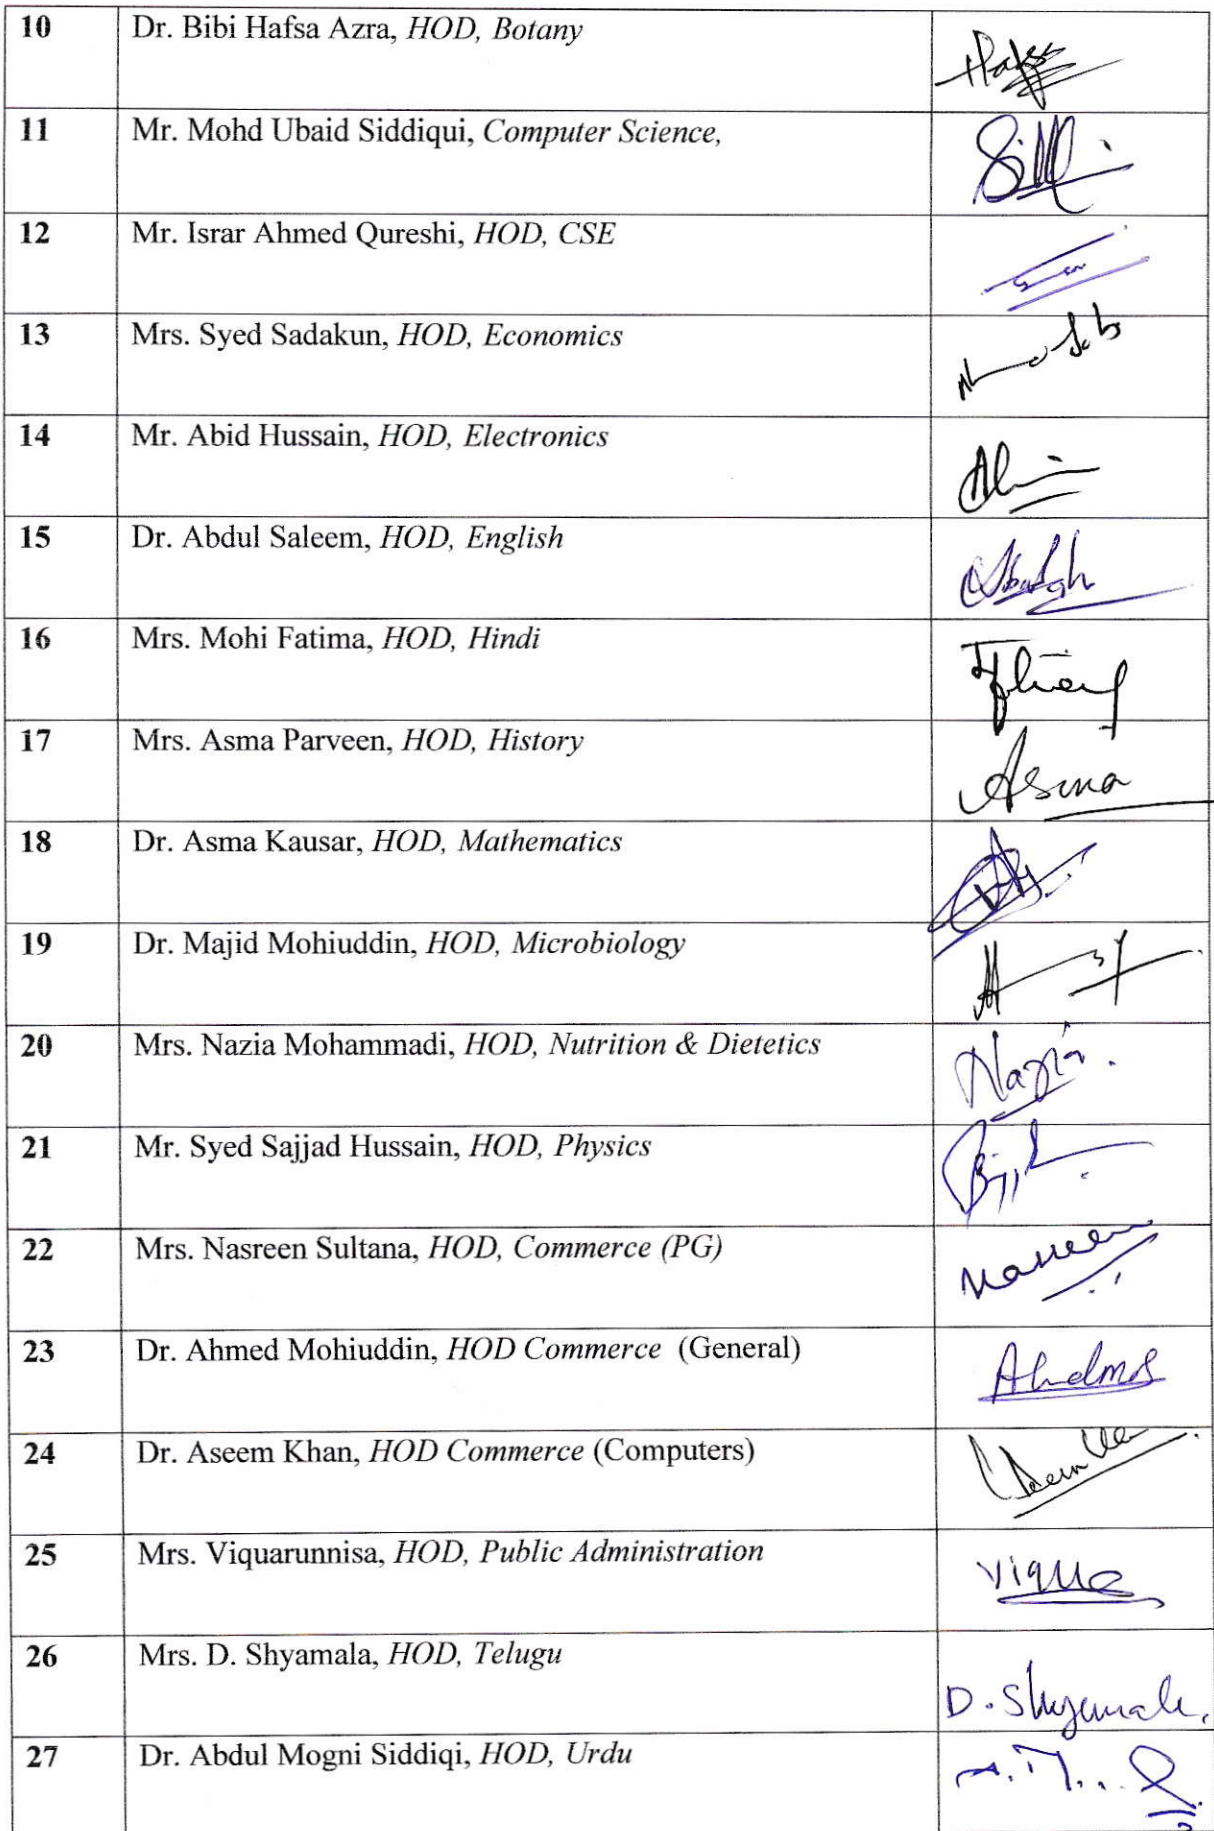 10 Dr. Bibi Hafsa Azra, HOD, Botany
11 Mr. Mohd Ubaid Siddiqui, Computer Science,
12 Mr. Israr Ahmed Qureshi, HOD, CSE
13 Mrs. Syed Sadakun, HOD, Economics
14 Mr. Abid Hussain, HOD, Electronics
15 Dr. Abdul Saleem, HOD, English
16 Mrs. Mohi Fatima, HOD, Hindi
17 Mrs. Asma Parveen, HOD, History Asma
18 Dr. Asma Kausar, HOD, Mathematics
19 Dr. Majid Mohiuddin, HOD, Microbiology
20 Mrs. Nazia Mohammadi, HOD, Nutrition & Dietetics Nazia.
21 Mr. Syed Sajjad Hussain, HOD, Physics
22 Mrs. Nasreen Sultana, HOD, Commerce (PG)
23 Dr. Ahmed Mohiuddin, HOD Commerce (General)
24 Dr. Aseem Khan, HOD Commerce (Computers)
25 Mrs. Viquarunnisa, HOD, Public Administration
26 Mrs. D. Shyamala, HOD, Telugu D. Shyamala.
27 Dr. Abdul Mogni Siddiqi, HOD, Urdu